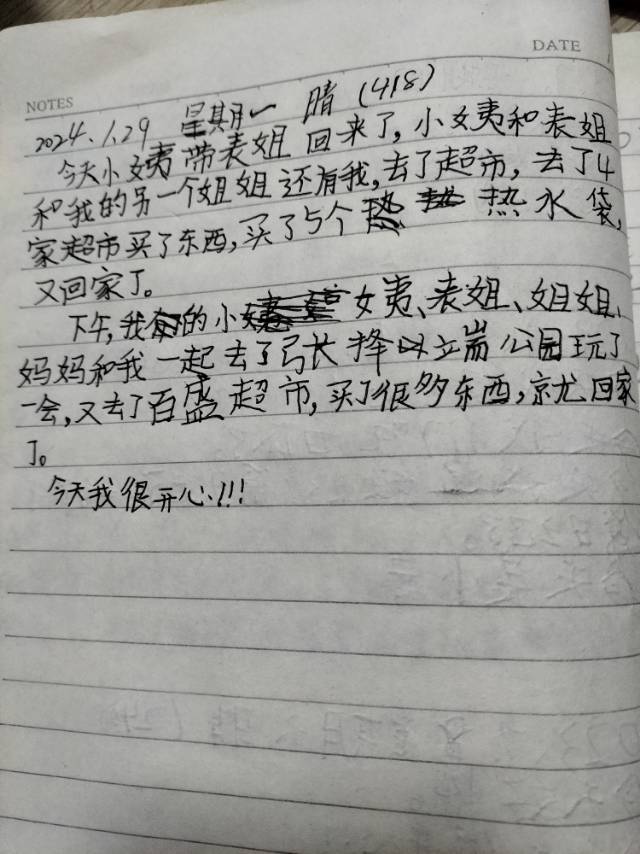 NOTES
DATE
2024.1.29 星期一 晴 (418)
今天小姨带表姐回来了,小姨和表姐
和我的另一个姐姐还有我,去了超市,去了4
家超市买了东西,买了5个热水袋,
又回家了。
下午,我的小姨、表姐、姐姐、
妈妈和我一起去了张择端公园玩了
一会,又去了百盛超市,买了很多东西,就回家
了。
今天我很开心!!!